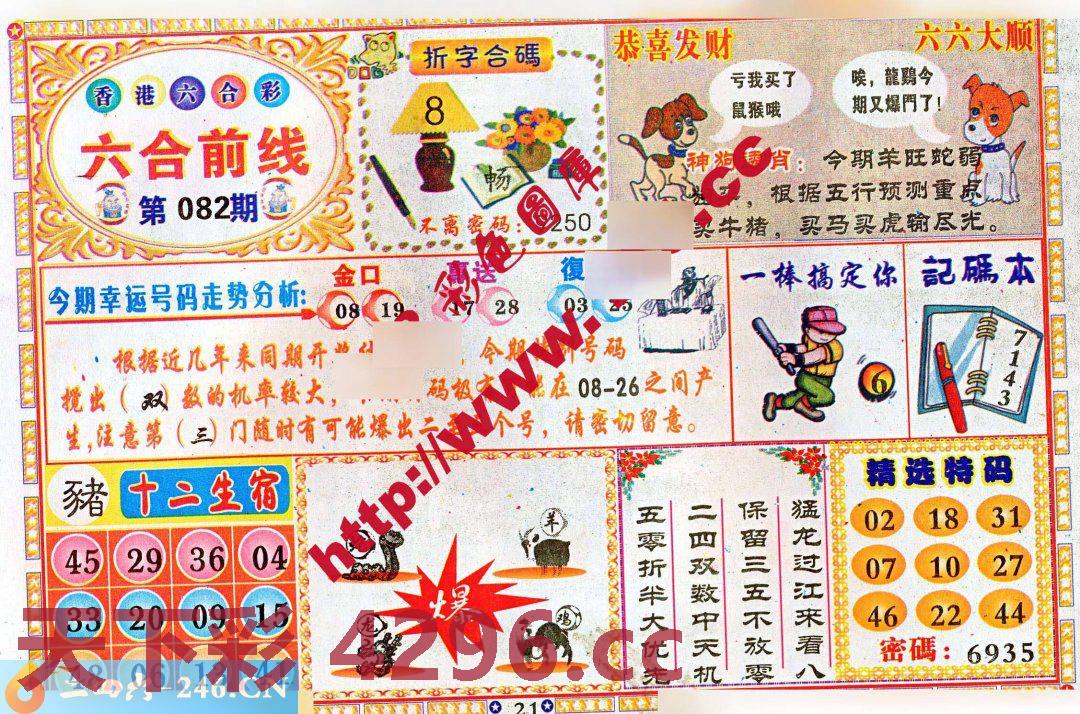 香港六合彩
六合前线
第 082期
折字合碼
8
畅
不离密码:
250
恭喜发财
六六大顺
亏我买了
鼠猴哦
唉，龍鷄今
期又爆門了!
神狗 肖: 今期羊旺蛇弱
根据五行预测重点
买牛猪，买马买虎输尽光。
今期幸运号码走势分析:
金口
08 19
送
17 28
復
03 25
根据近几年来同期开
今期 号码
搅出（双）数的机率较大，
码极有 在 08-26 之间产
生,注意第（三）门随时有可能爆出二 个号，请密切留意。
一棒搞定你
6
記碼本
7143
豬
十二生宿
45 29 36 04
33 20 09 15
羊
爆
龙
鸡
猛龙过江来看八
保留三五不放零
二四双数中天机
五零折半大优先
精选特码
02 18 31
07 10 27
46 22 44
密碼: 6935
21
彩色圖庫
http://www.
.cc
天下彩 4296.cc
246.CN